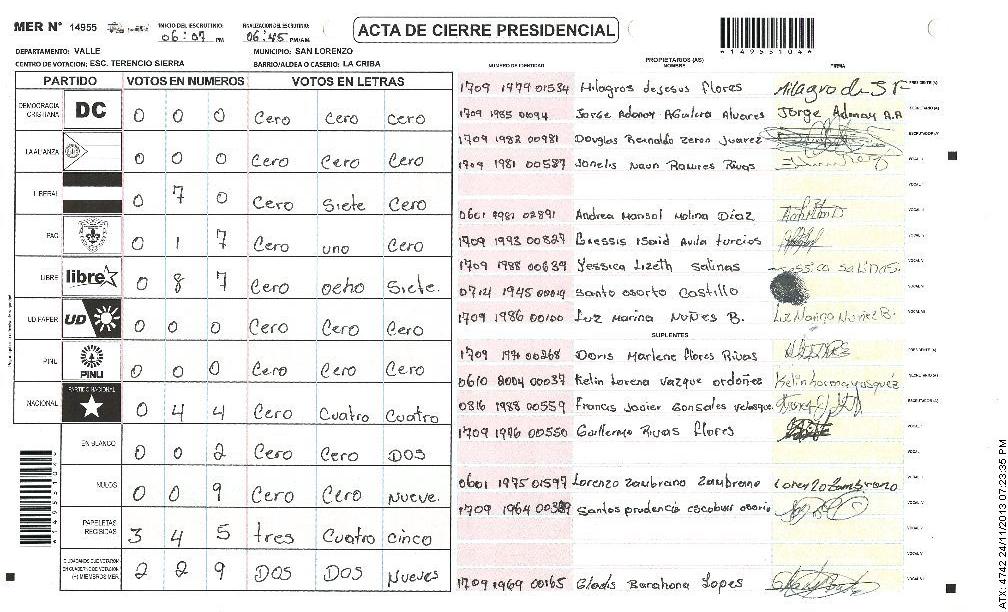 MER N° 14955 INICIO DEL ESCRUTINIO: 06:07 PM FINALIZACION DEL ESCRUTINIO: 06:45 PM/AM
ACTA DE CIERRE PRESIDENCIAL
*1495510 4*
DEPARTAMENTO: VALLE MUNICIPIO: SAN LORENZO
CENTRO DE VOTACION: ESC. TERENCIO SIERRA BARRIO/ALDEA O CASERIO: LA CRIBA
PARTIDO VOTOS EN NUMEROS VOTOS EN LETRAS
DEMOCRACIA CRISTIANA DC 0 0 0 Cero Cero cero
LA ALIANZA 0 0 0 Cero Cero Cero
LIBERAL 0 7 0 Cero Siete Cero
PAC 0 1 7 Cero uno Cero
LIBRE libre 0 8 7 Cero ocho Siete.
UD.FAPER UD 0 0 0 Cero Cero Cero
PINU PINU 0 0 0 Cero Cero Cero
NACIONAL PARTIDO NACIONAL 0 4 4 Cero Cuatro Cuatro
EN BLANCO 0 0 2 Cero Cero DOS
NULOS 0 0 9 Cero Cero Nueve.
PAPELETAS RECIBIDAS 3 4 5 tres Cuatro cinco
CIUDADANOS QUE VOTARON EN CUADERNO DE VOTACION (+) MIEMBROS MER 2 2 9 DOS DOS Nueves
PROPIETARIOS (AS)
NUMERO DE IDENTIDAD NOMBRE FIRMA
1709 1979 01534 Milagros dejesus flores PRESIDENTE (A)
1709 1985 00194 Jorge Adonay Aguilera Alvares Jorge Adonay A.A SECRETARIO (A)
1709 1982 00981 Douglas Reinaldo Zeron Juarez ESCRUTADOR (A)
1709 1981 00587 Naun Ramires Rivas VOCAL I
0601 1981 02891 Andrea Marisol Molina Díaz
1709 1993 00827 Isaid Avila turcios
1709 1988 00639 Yessica Lizeth Salinas Salinas.
0714 1945 Santo osorto Castillo
1709 1986 00100 Luz Marina Nuñes B. Luz Marina Nuñez B.
SUPLENTES
1709 00268 Doris Marlene flores Rivas PRESIDENTE (A)
0610 00037 Kelin Lorena Vazque ordoñes SECRETARIO (A)
0816 1988 00559 Francis Javier Gonsales velasque. ESCRUTADOR (A)
1709 1996 00550 Guillermo Rivas flores
0601 1975 01597 Lorenzo Zambrano Zambrano Lorenzo Zambrano
1709 1964 Santos prudencio escobar osorio
1709 1969 00165 Gladis Barahona Lopes
ATX: 4742 24/11/2013 07:23:35 PM